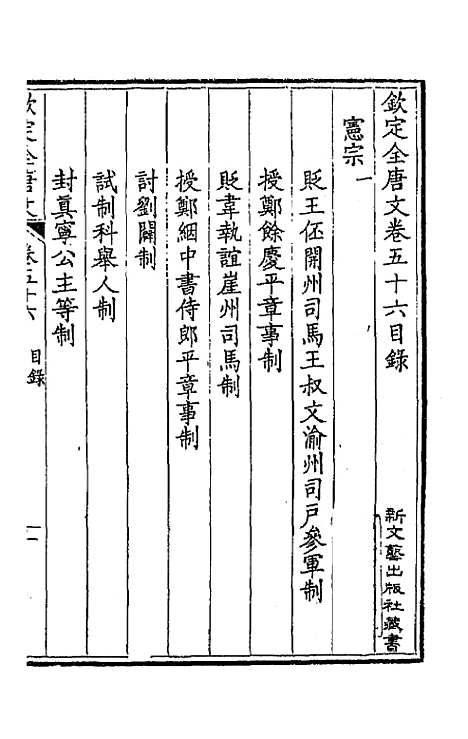 欽定全唐文卷五十六目錄
新文藝出版社藏書
憲宗一
貶王伾開州司馬王叔文渝州司戶參軍制
授鄭餘慶平章事制
貶韋執誼崖州司馬制
授鄭絪中書侍郎平章事制
討劉闢制
試制科舉人制
封真寧公主等制
欽定全唐文 卷五十六 目錄 一